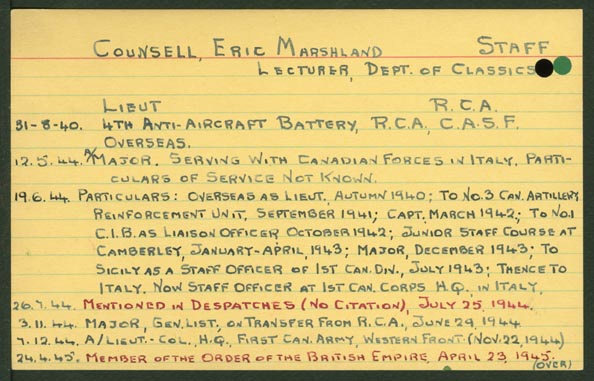 COUNSELL, ERIC MARSHLAND STAFF
LECTURER, DEPT. OF CLASSICS
LIEUT R.C.A.
31-8-40. 4TH ANTI-AIRCRAFT BATTERY, R.C.A., C.A.S.F.
OVERSEAS.
12.5.44. A/MAJOR. SERVING WITH CANADIAN FORCES IN ITALY, PARTI-
CULARS OF SERVICE NOT KNOWN.
19.6.44. PARTICULARS: OVERSEAS AS LIEUT, AUTUMN 1940; TO NO.3 CAN. ARTILLERY
REINFORCEMENT UNIT, SEPTEMBER 1941; CAPT. MARCH 1942; TO NO.1
C.I.B. AS LIAISON OFFICER, OCTOBER 1942; JUNIOR STAFF COURSE AT
CAMBERLEY, JANUARY-APRIL, 1943; MAJOR, DECEMBER 1943; TO
SICILY AS A STAFF OFFICER OF 1ST CAN. DIV., JULY 1943; THENCE TO
ITALY. NOW STAFF OFFICER AT 1ST CAN. CORPS H.Q. IN ITALY.
26.7.44. MENTIONED IN DESPATCHES (NO CITATION), JULY 25, 1944.
3.11.44. MAJOR, GEN. LIST, ON TRANSFER FROM R.C.A., JUNE 29, 1944
7.12.44. A/LIEUT.-COL., H.Q., FIRST CAN. ARMY, WESTERN FRONT. (NOV. 22, 1944)
24.4.45. MEMBER OF THE ORDER OF THE BRITISH EMPIRE, APRIL 23, 1945.
(OVER)